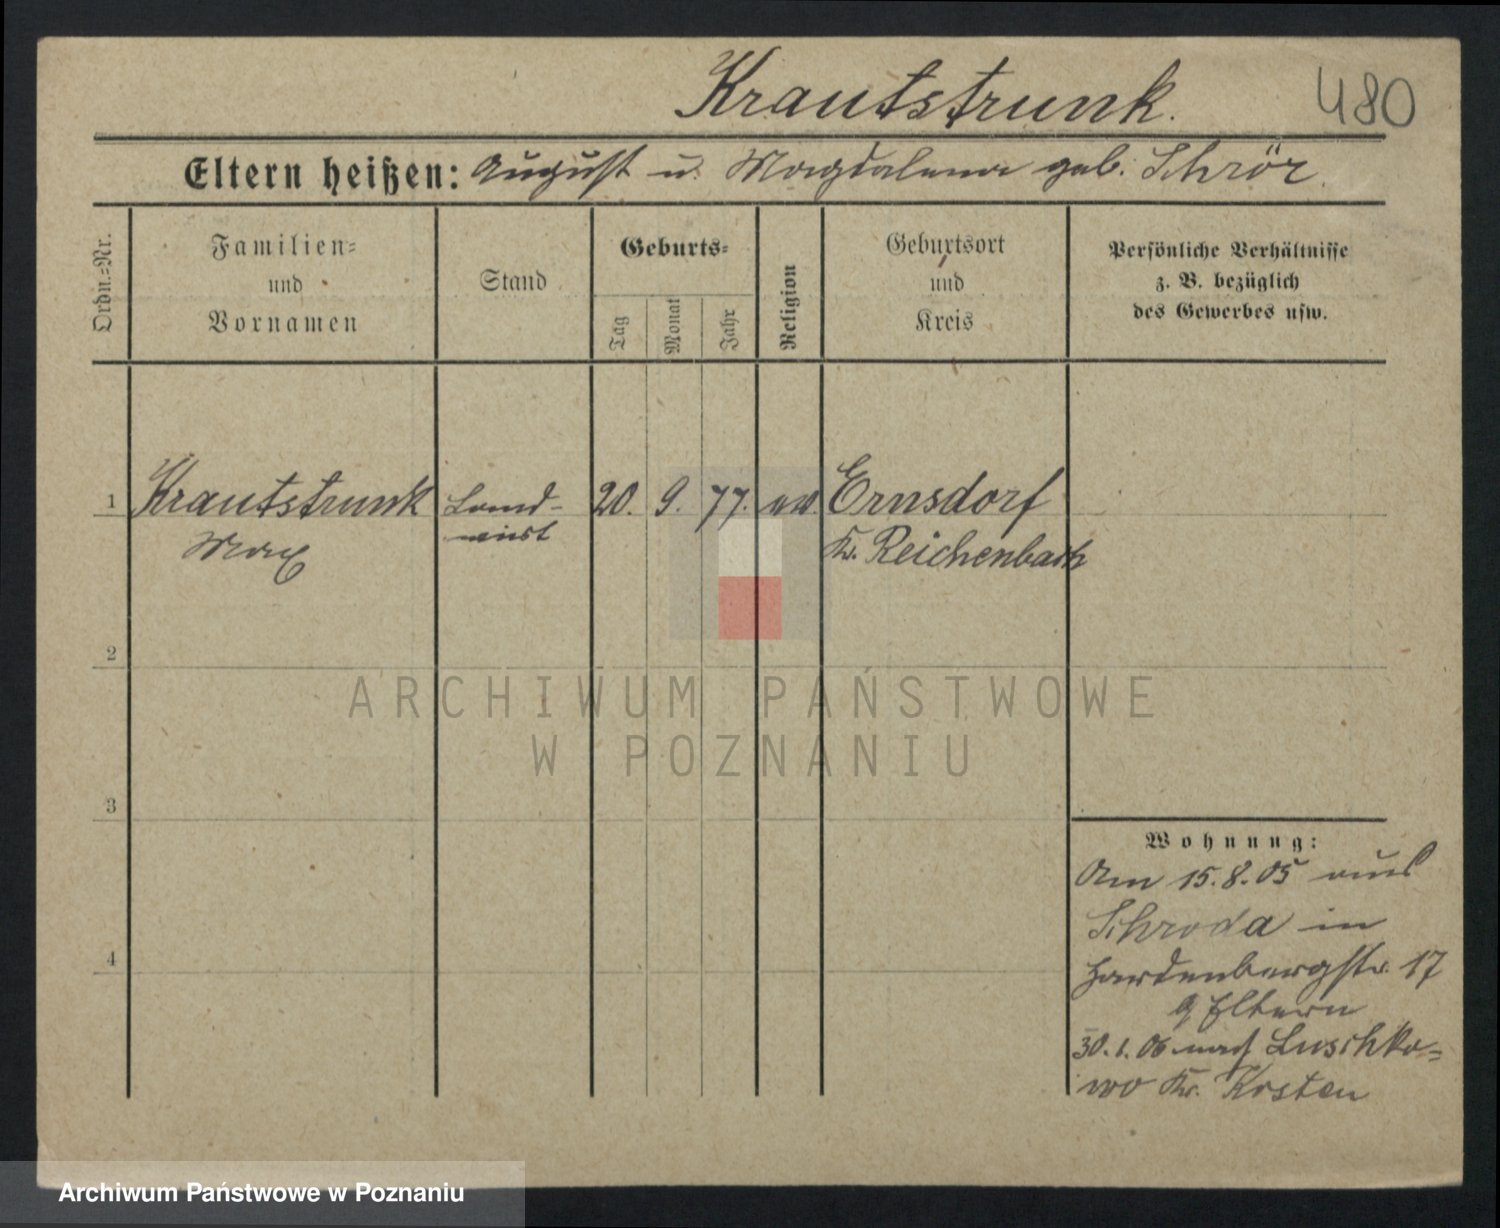 Krautstrunk.
480
Eltern heißen: August u. Magdalena geb. Schrör.
Ordn.=Nr.
Familien=
und
Vornamen
Stand
Geburts=
Tag
Monat
Jahr
Religion
Geburtsort
und
Kreis
Persönliche Verhältnisse
z. B. bezüglich
des Gewerbes usw.
1 Krautstrunk Land- 20. 9. 77. ev. Ernsdorf
Max wirt Kr. Reichenbach
2
3
4
Wohnung:
Am 15.8.05 aus
Schroda in
Hardenbergstr. 17
Eltern
30.1.06 nach Luschko=
wo Kr. Kosten
ARCHIWUM PAŃSTWOWE
W POZNANIU
Archiwum Państwowe w Poznaniu